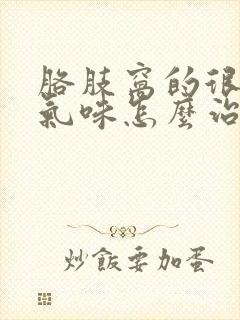 胳肢窩的很
氣味怎麼治
炒飯要加蛋